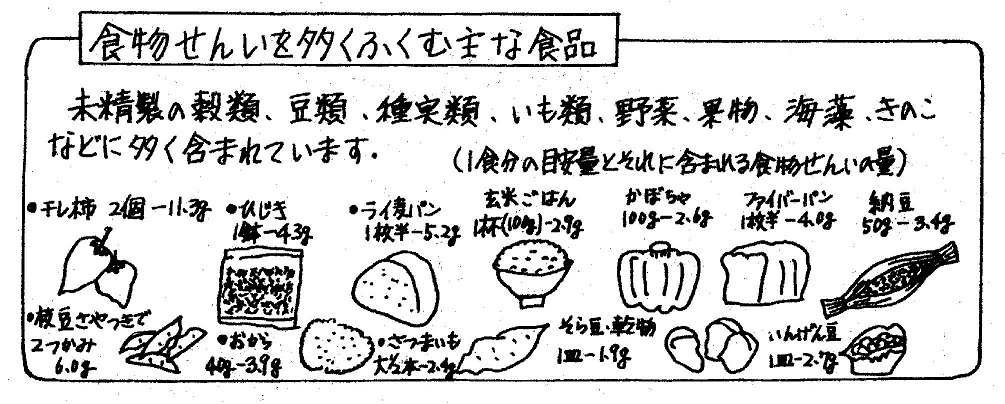 食物せんいを多くふくむ主な食品
未精製の穀類、豆類、種実類、いも類、野菜、果物、海藻、きのこ
などに多く含まれています。
(1食分の目安量とそれに含まれる食物せんいの量)
•干し柿 2個-11.3g
•ひじき
1鉢-4.3g
•ライ麦パン
1枚半-5.2g
玄米ごはん
1杯(100g)-2.9g
かぼちゃ
100g-2.6g
ファイバーパン
1枚半-4.0g
納豆
50g-3.4g
•枝豆さやつきで
2つかみ
6.0g
•おから
40g-3.9g
•さつまいも
大½本-2.4g
そら豆・乾物
1皿-1.9g
いんげん豆
1皿-2.7g